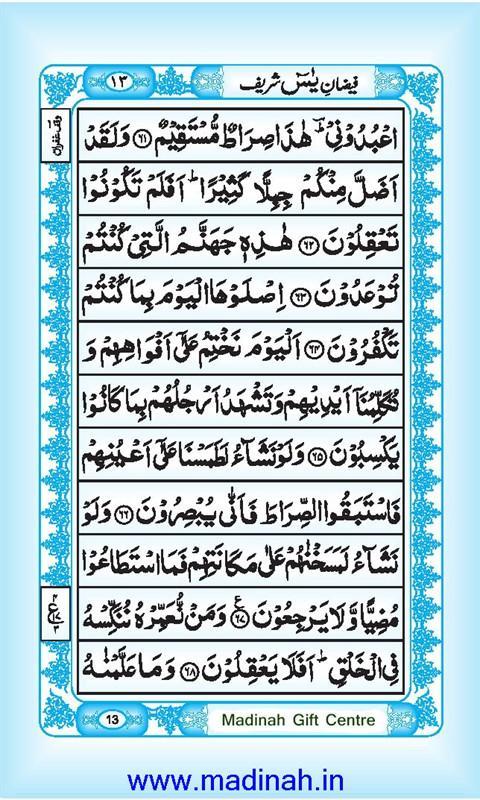 فیضانِ یٰسٓ شریف
۱۳
وقف غفران
اعْبُدُوْنِیْ ؔؕ هٰذَا صِرَاطٌ مُّسْتَقِیْمٌ ﴿۶۱﴾ وَلَقَدْ
اَضَلَّ مِنْكُمْ جِبِلًّا كَثِیْرًا ؕ اَفَلَمْ تَكُوْنُوْا
تَعْقِلُوْنَ ﴿۶۲﴾ هٰذِهٖ جَهَنَّمُ الَّتِیْ كُنْتُمْ
تُوْعَدُوْنَ ﴿۶۳﴾ اِصْلَوْهَا الْیَوْمَ بِمَا كُنْتُمْ
تَكْفُرُوْنَ ﴿۶۴﴾ اَلْیَوْمَ نَخْتِمُ عَلٰۤی اَفْوَاهِهِمْ وَ
تُكَلِّمُنَاۤ اَیْدِیْهِمْ وَتَشْهَدُ اَرْجُلُهُمْ بِمَا كَانُوْا
یَكْسِبُوْنَ ﴿۶۵﴾ وَلَوْ نَشَآءُ لَطَمَسْنَا عَلٰۤی اَعْیُنِهِمْ
فَاسْتَبَقُوا الصِّرَاطَ فَاَنّٰی یُبْصِرُوْنَ ﴿۶۶﴾ وَلَوْ
نَشَآءُ لَمَسَخْنٰهُمْ عَلٰی مَكَانَتِهِمْ فَمَا اسْتَطَاعُوْا
مُضِیًّا وَّلَا یَرْجِعُوْنَ ﴿۶۷﴾ وَمَنْ نُّعَمِّرْهُ نُنَكِّسْهُ
فِی الْخَلْقِ ؕ اَفَلَا یَعْقِلُوْنَ ﴿۶۸﴾ وَمَا عَلَّمْنٰهُ
13
Madinah Gift Centre
www.madinah.in